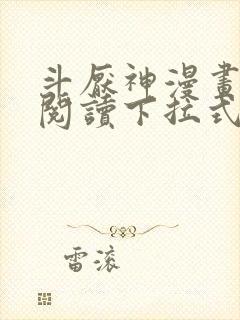 斗厭神漫畫
閱讀下拉式
雷滚